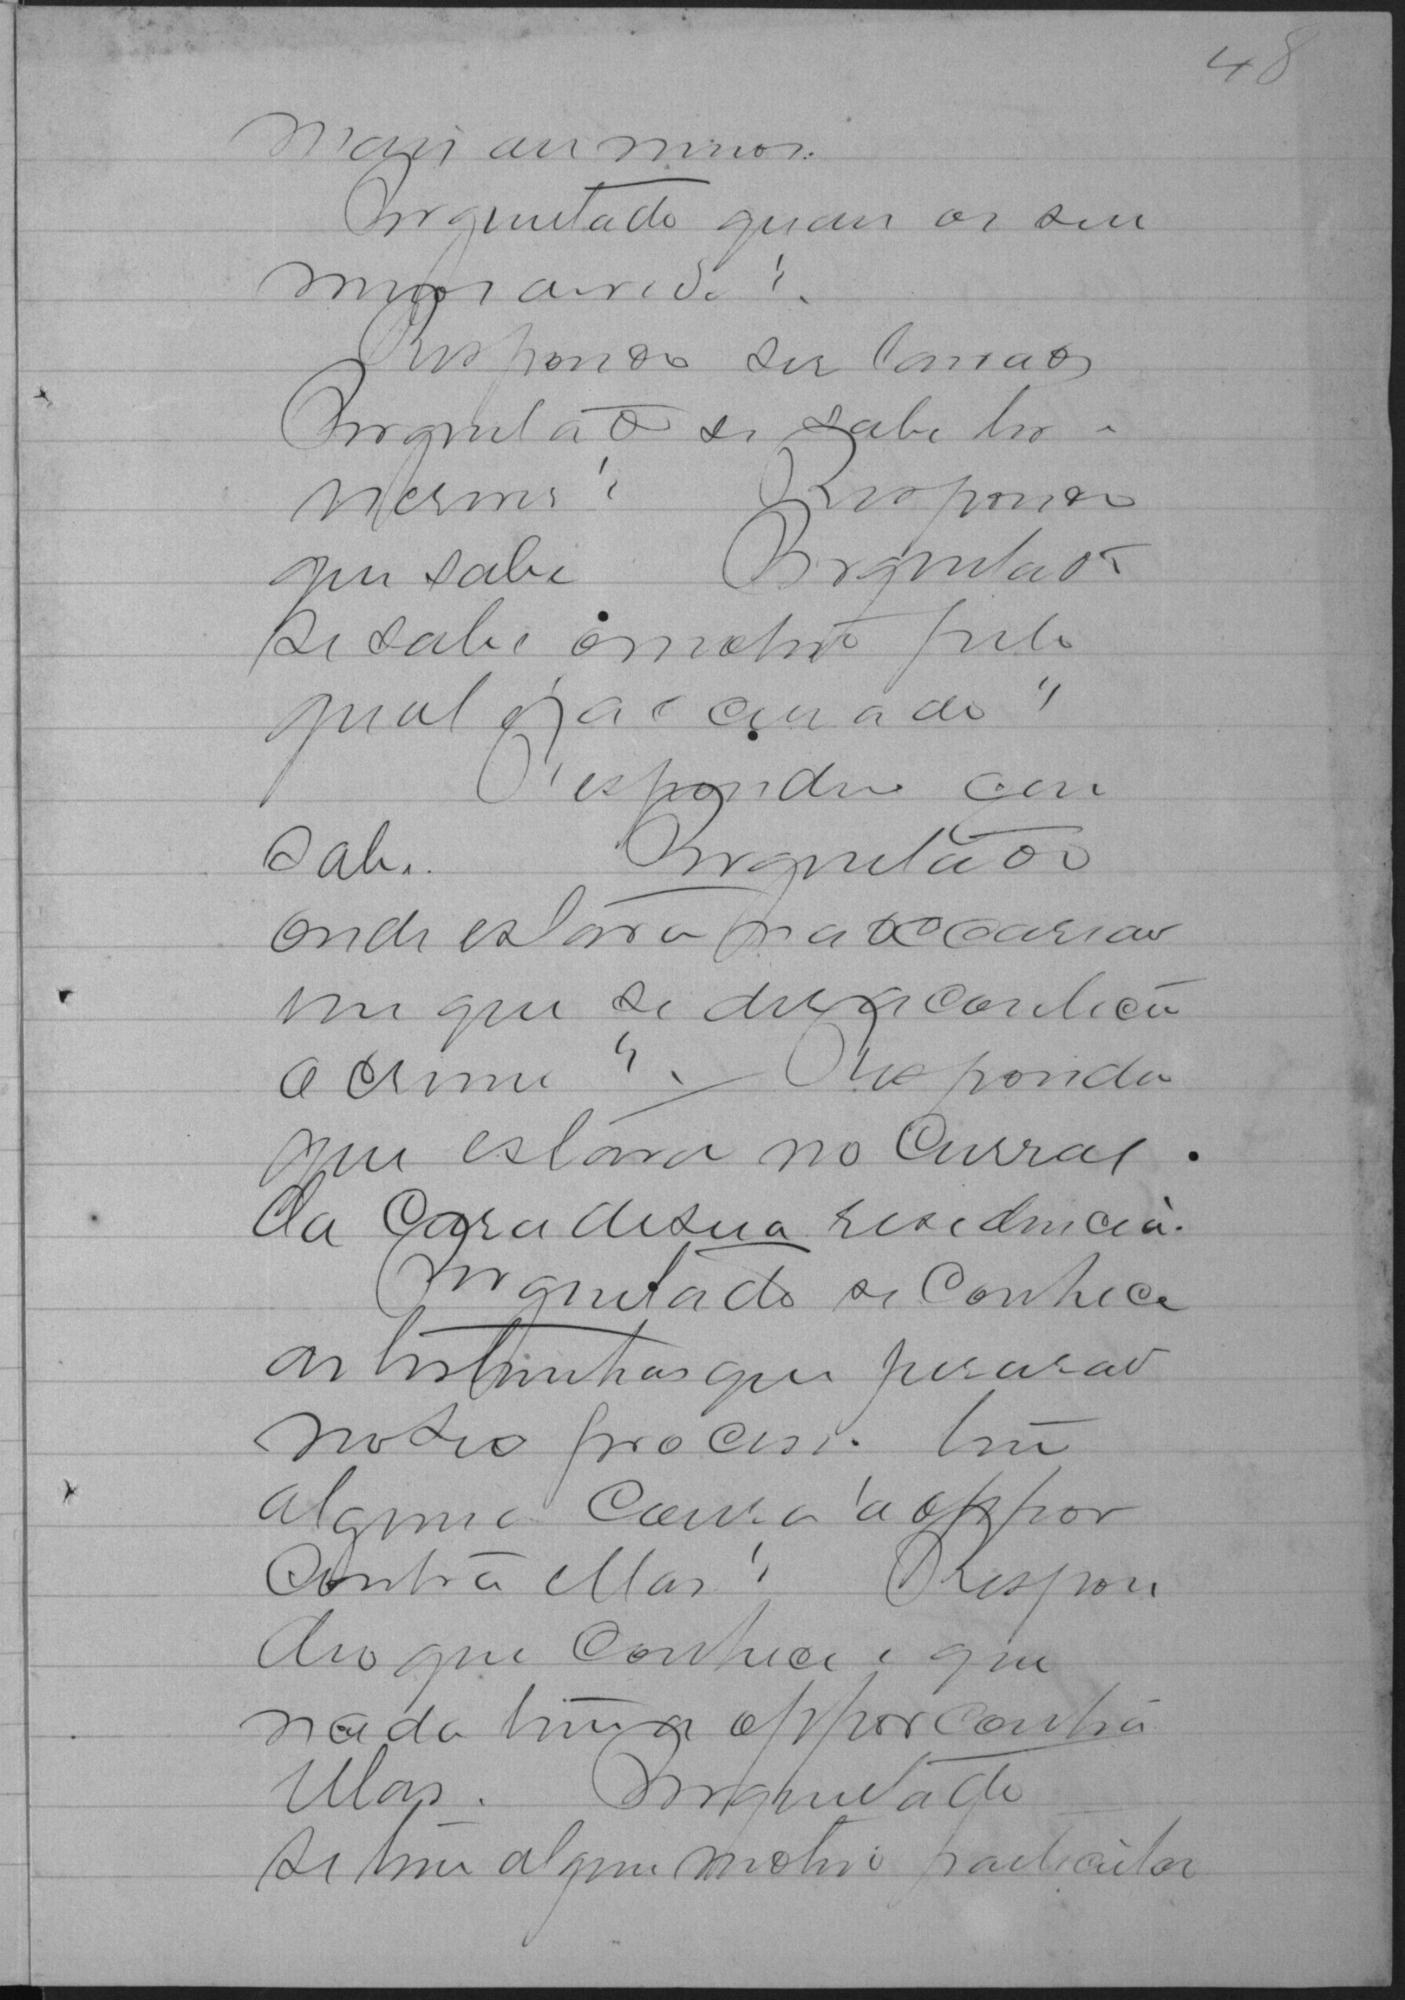 48
mais ou menos.
Perguntado qual os seu
meios de vida?
Respondeo ser lavrador
Perguntado se sabe ler e
escrever? Respondeo
que sabe Perguntado
se sabe o motivo pelo
qual é accusado?
Respondeu que
sabe. Perguntado
onde estava na occasiao
em que se diz aconteceu
o crime? Respondeu
que estava no Curral
da Casa de sua residencia.
Perguntado se Conhece
as testemunhas que jurarao
neste processo. tem
alguma Causa a oppor
Contra ellas? Respon
deo que Conhece e que
nada tem a oppor contra
ellas. Perguntado
se tem algum motivo particular